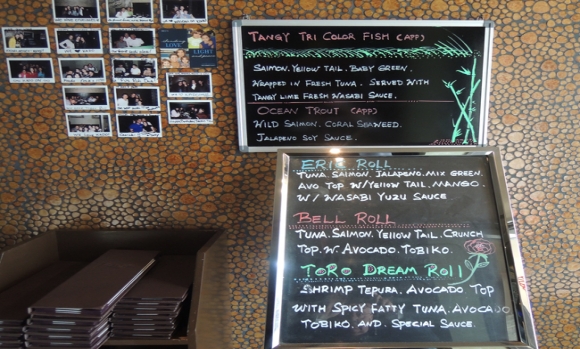 TANGY TRI COLOR FISH (APP)
SAIMON. YELLOW TAIL. BABY GREEN.
WRAPPED IN FRESH TUNA. SERVED WITH
TANGY LIME FRESH WASABI SAUCE.
OCEAN TROUT (APP)
WILD SAIMON. CORAL SEAWEED.
JALAPENO SOY SAUCE.
ERIE ROLL
TUNA. SAIMON. JALAPENO. MIX GREEN.
AVO TOP W/YELLOW TAIL. MANGO.
W/ WASABI YUZU SAUCE
BELL ROLL
TUNA. SAIMON. YELLOW TAIL. CRUNCH
TOP. W AVOCADO. TOBIKO.
TORO DREAM ROLL
SHRIMP TEPURA. AVOCADO TOP
WITH SPICY FATTY TUNA. AVOCADO
TOBIKO. AND. SPECIAL SAUCE.
LOVE
LIGHT